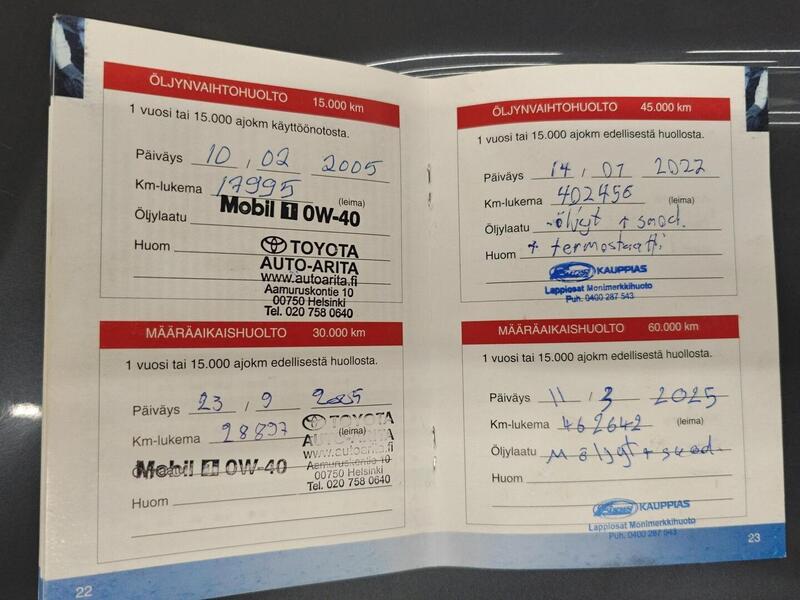 ÖLJYNVAIHTOHUOLTO 15.000 km
1 vuosi tai 15.000 ajokm käyttöönotosta.
Päiväys 10 , 02 2005
Km-lukema 17995 (leima)
Mobil 1 0W-40
Öljylaatu
Huom
TOYOTA
AUTO-ARITA
www.autoarita.fi
Aamuruskontie 10
00750 Helsinki
Tel. 020 758 0640
MÄÄRÄAIKAISHUOLTO 30.000 km
1 vuosi tai 15.000 ajokm edellisestä huollosta.
Päiväys 23 / 9 2005
Km-lukema 28897 (leima)
TOYOTA
AUTO-ARITA
www.autoarita.fi
Aamuruskontie 10
00750 Helsinki
Tel. 020 758 0640
Mobil 1 0W-40
Huom
22
ÖLJYNVAIHTOHUOLTO 45.000 km
1 vuosi tai 15.000 ajokm edellisestä huollosta.
Päiväys 14 , 07 2022
Km-lukema 402456 (leima)
Öljylaatu -öljyt + suod.
Huom + termostaatti
KAUPPIAS
Lappiosat Monimerkkihuoto
Puh. 0400 287 543
MÄÄRÄAIKAISHUOLTO 60.000 km
1 vuosi tai 15.000 ajokm edellisestä huollosta.
Päiväys 11 / 3 2025
Km-lukema 462642 (leima)
Öljylaatu M öljyt + suod.
Huom
KAUPPIAS
Lappiosat Monimerkkihuoto
Puh. 0400 287 543
23